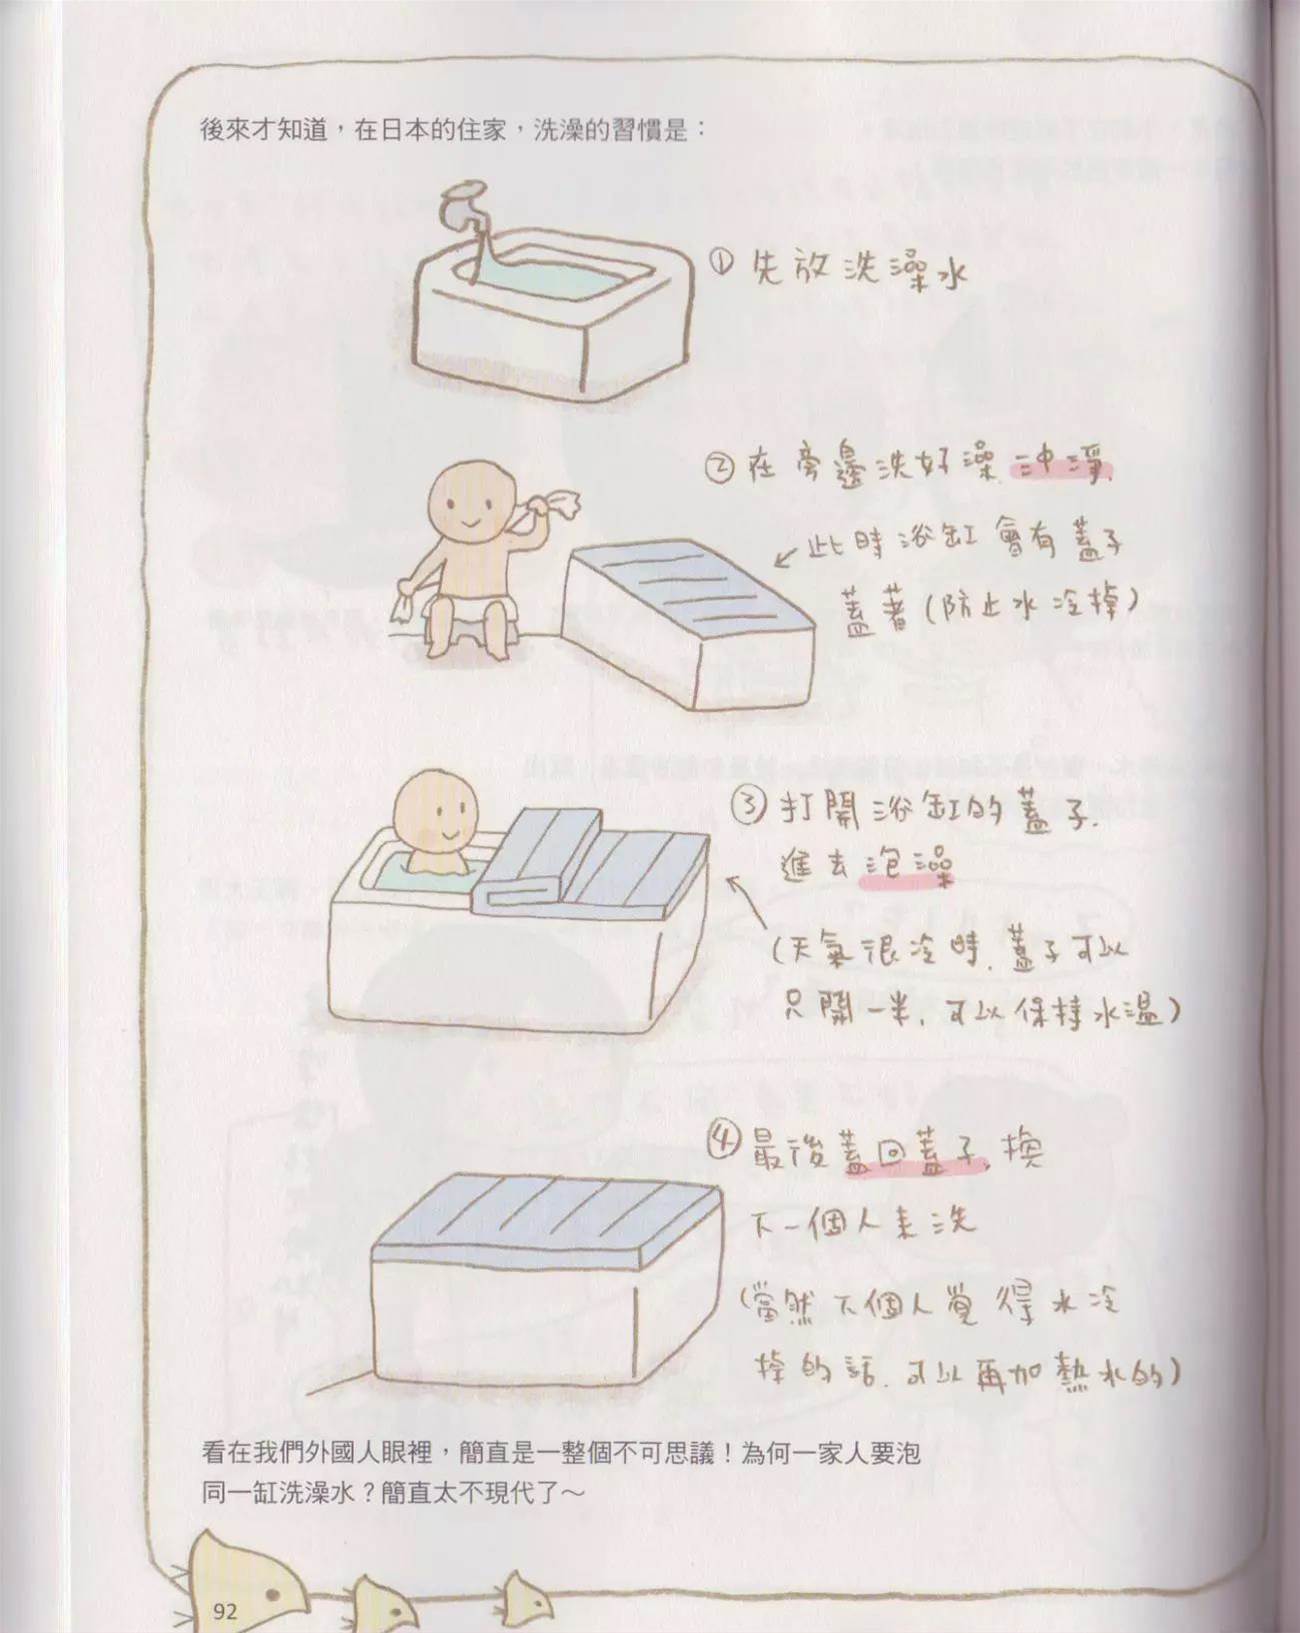 後來才知道，在日本的住家，洗澡的習慣是：
①先放洗澡水
②在旁邊洗好澡.沖淨.
此時浴缸會有蓋子
蓋著(防止水冷掉)
③打開浴缸的蓋子.
進去泡澡
(天氣很冷時.蓋子可以
只開一半.可以保持水溫)
④最後蓋回蓋子.換
下一個人來洗
(當然下個人覺得水冷
掉的話.可以再加熱水的)
看在我們外國人眼裡，簡直是一整個不可思議！為何一家人要泡
同一缸洗澡水？簡直太不現代了～
92